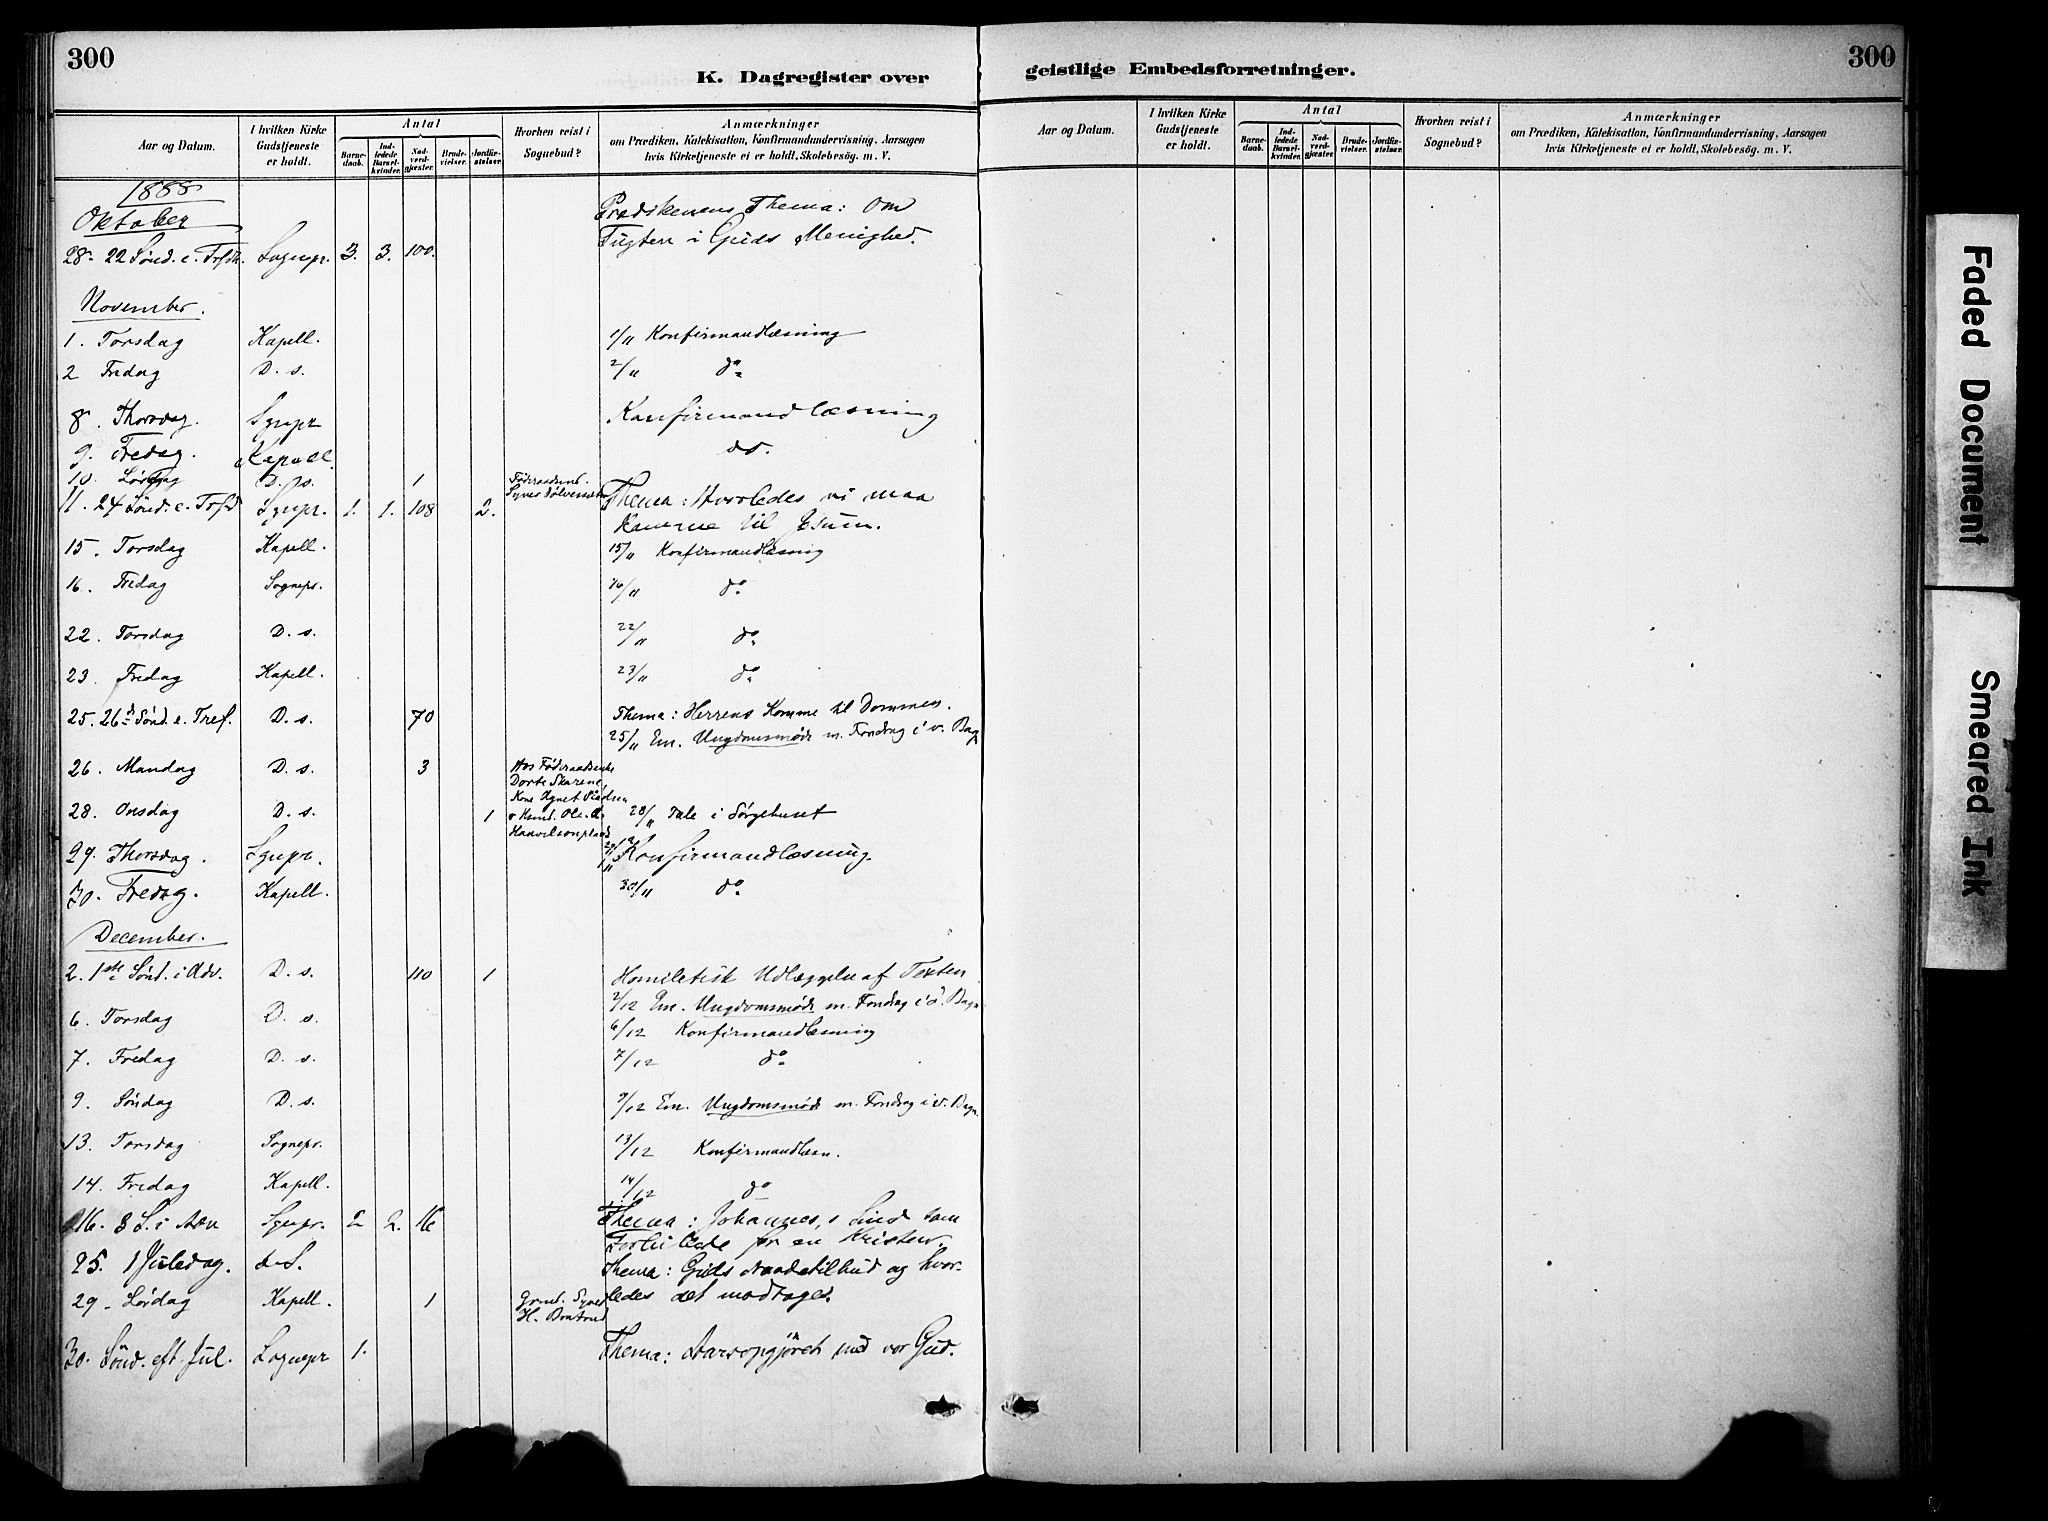 300
K. Dagregister over
geistlige Embedsforretninger.
300
Aar og Datum.
I hvilken Kirke Gudstjeneste er holdt.
Antal
Barnedaab.
Indledede Barselkvinder.
Nadverdgjæster.
Brudevielser.
Jordfæstelser.
Hvorhen reist i Sognebud?
Anmærkninger
om Prædiken, Katekisation, Konfirmandundervisning, Aarsagen
hvis Kirketjeneste ei er holdt, Skolebesög. m. V.
Aar og Datum.
I hvilken Kirke Gudstjeneste er holdt.
Antal
Barnedaab.
Indledede Barselkvinder.
Nadverdgjæster.
Brudevielser.
Jordfæstelser.
Hvorhen reist i Sognebud?
Anmærkninger
om Prædiken, Katekisation, Konfirmandundervisning, Aarsagen
hvis Kirketjeneste ei er holdt, Skolebesög. m. V.
1888
Oktober
Prædikenens Thema: Om
28. 22 Sönd. e. Trfdh. Sognepr. 3. 3. 100. Tugten i Guds Menighed.
November.
1. Torsdag Kapell. 1/11 Konfirmandlæsning
2 Fredag D. s. 2/11 do
8. Thorsdag. Sgnpr Konfirmandlæsning
9. Fredag. Kapell. do.
10. Lördag D. s. 1 Föderaadsmd.
Syver
11. 24 Sönd. e. Trfd Sgnpr. 1. 1. 108 2. Thema: Hvorledes vi maa
komme til Jesum.
15. Torsdag Kapell. 15/11 Konfirmandlæsning
16. Fredag Sognepr. 16/11 do
22. Torsdag D. s. 22/11 do
23. Fredag Kapell. 23/11 do
25. 26d Sönd. e. Tref. D. s. 70 Thema: Herrens Komme til Dommen.
25/11 Em. Ungdomsmöde m. Foredrag i v. Bagn
26. Mandag D. s. 3 Hos Föderaadsenke
Dorte
Kone
28. Onsdag D. s. 1 Ole
28/11 Tale i Sörgehuset
29. Thorsdag. Sgnpr. 29/11 Konfirmandlæsning.
30. Fredag. Kapell. 30/11 do
December.
2. 1ste Sönd. i Adv. D. s. 110 1 Homiletisk Udlæggelse af Texten
2/12 Em. Ungdomsmöde m. Foredrag i ö. Bagn
6. Torsdag D. s. 6/12 Konfirmandlæsning
7. Fredag D. s. 7/12 do
9. Söndag D. s. 9/12 Em. Ungdomsmöde m. Foredrag i v. Bagn.
13. Torsdag Sognepr. 13/12 Konfirmandlæsn.
14. Fredag Kapell. 14/12 do
16. 3 S. i Adv Sgnpr. 2 2. 16 Thema: Johannes, s Sind som
Forbillede for en Kristen.
25. 1 Juledag. d. S. Thema: Guds Naadetilbud og hvor-
29. Lördag Kapell. 1 Grmd. Syver
H.
ledes det modtages.
30. Sönd. eft. Jul. Sognepr 1. Thema: Aarsopgjöret med vor Gud.
Faded Document
Smeared Ink